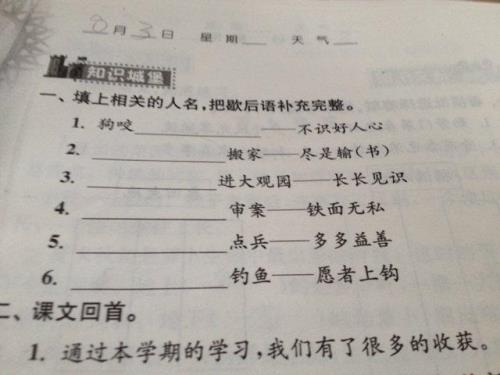 8月3日 星期 天气
知识城堡
一、填上相关的人名,把歇后语补充完整。
1. 狗咬________——不识好人心
2. ________搬家——尽是输(书)
3. ________进大观园——长长见识
4. ________审案——铁面无私
5. ________点兵——多多益善
6. ________钓鱼——愿者上钩
二、课文回首。
1. 通过本学期的学习,我们有了很多的收获。